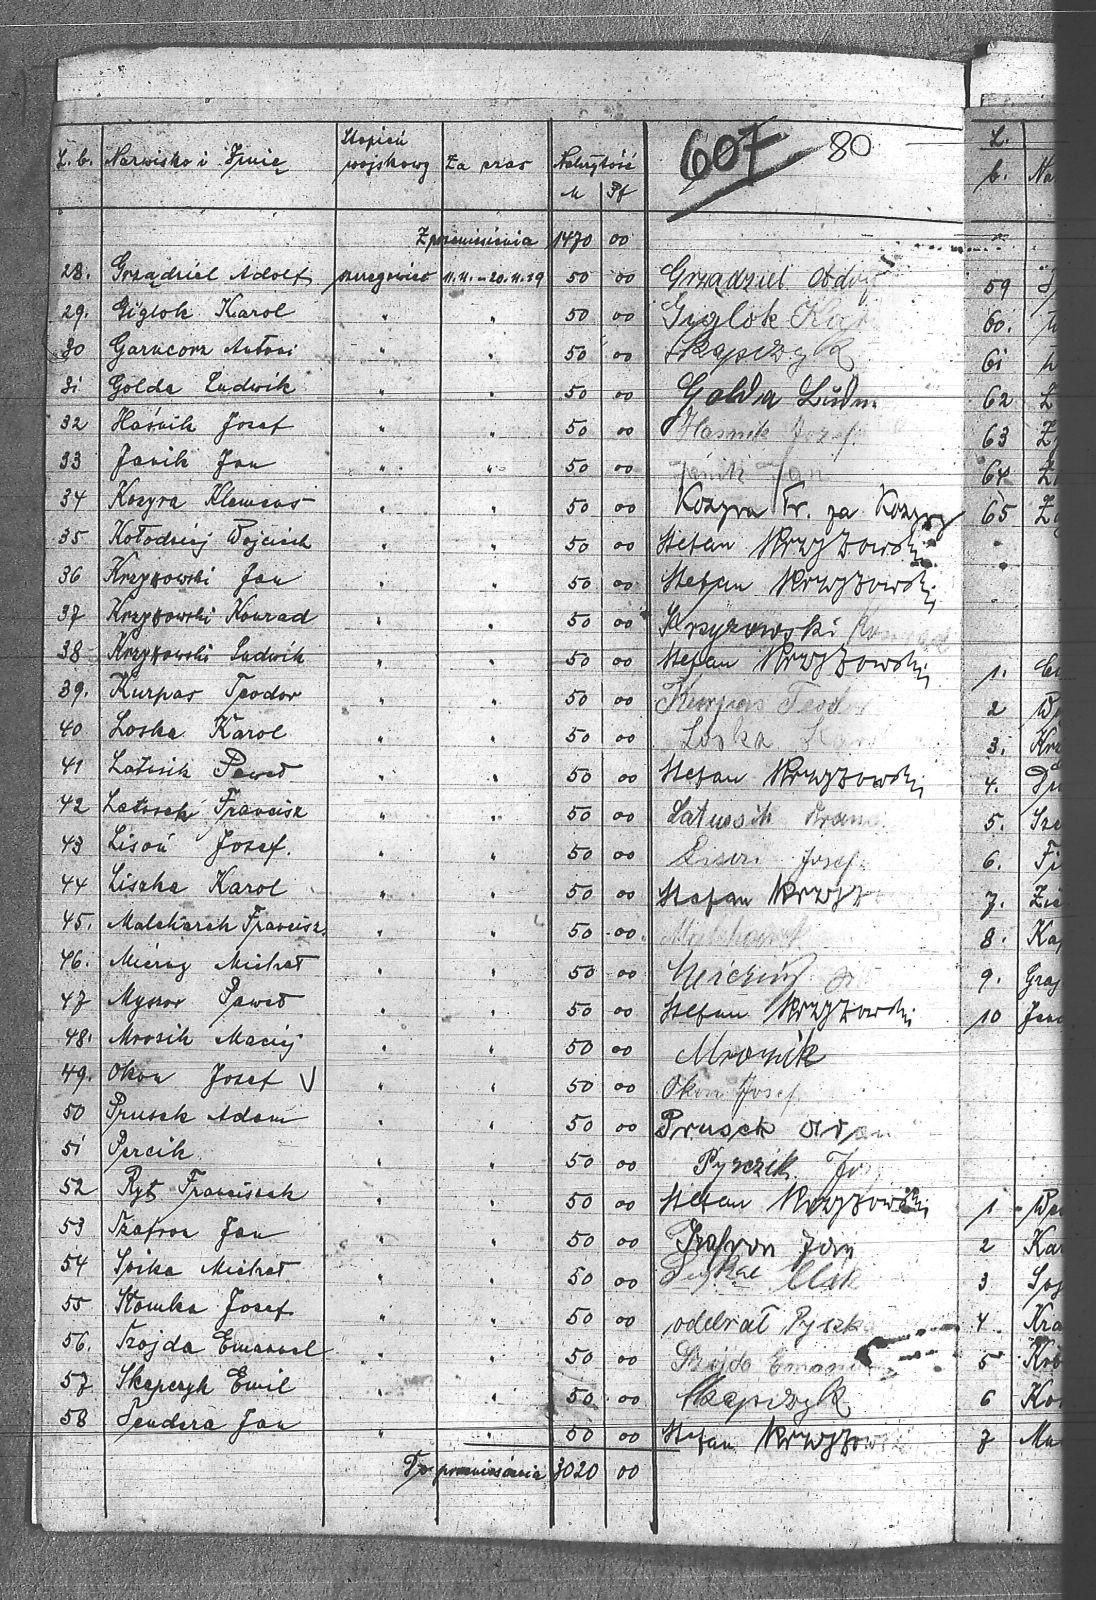 607 80
L.b. Nazwisko i Imię Stopień wojskowy Za czas Należytość
M Pf
Z przeniesienia 1470 00
28. Grządziel Adolf szeregowiec 11.11.-20.11.19 50 00 Grządziel Adolf
29. Giglok Karol " " 50 00 Gyglok Kar
30 Garncorz Antoni " " 50 00 Skapczyk
31 Golda Ludwik " " 50 00 Golda Ludw
32 Haśnik Jozef " " 50 00 Hasnik Jozef
33 Janik Jan " " 50 00 Janik Jan
34 Kozyra Klemens " " 50 00 Kozyra Fr. za Kozyr
35 Kołodziej Wojciech " " 50 00 Stefan Krzyżowski
36 Krzyżowski Jan " " 50 00 Stefan Krzyżowski
37 Krzyżowski Konrad " " 50 00 Krzyzowski Konrad
38 Krzyżowski Ludwik " " 50 00 Stefan Krzyżowski
39. Kurpas Teodor " " 50 00 Kurpas Teodor
40 Loska Karol " " 50 00 Loska Kar
41 Latusik Paweł " " 50 00 Stefan Krzyżowski
42 Latusek Francisz " " 50 00 Latusik Franc
43 Lisoń Jozef. " " 50 00 Lison Josef
44 Liszka Karol " " 50 00 Stefan Krzyż
45. Malcharek Francisz. " " 50 00.
46. Michał " " 50 00
47 Myszor Paweł " " 50 00 Stefan Krzyżowski
48. Mrosik Maciej " " 50 00 Mrozik
49. Okon Jozef V " " 50 00 Okon Josef
50 Prusek Adam " " 50 00 Prusek Adam
51 Percik " " 50 00 Pyrczik Jo
52 Ryt Franciszek " " 50 00 Stefan Krzyżowski
53 Szafron Jan " " 50 00 Szafron Jan
54 Michał " " 50 00
55 Słomka Jozef " " 50 00 odebrał Pyszka
56. Szojda Emanuel " " 50 00 Szojda Emanu
57 Skapczyk Emil " " 50 00 Skapczyk
58 Tendera Jan " " 50 00 Stefan Krzyżow
Do przeniesienia 3020 00
L.
b. Na
59
60.
61
62
63
64
65
1.
2
3. Krz
4.
5.
6.
7.
8. Kap
9.
10
1
2 Kar
3
4. Kra
5
6
7